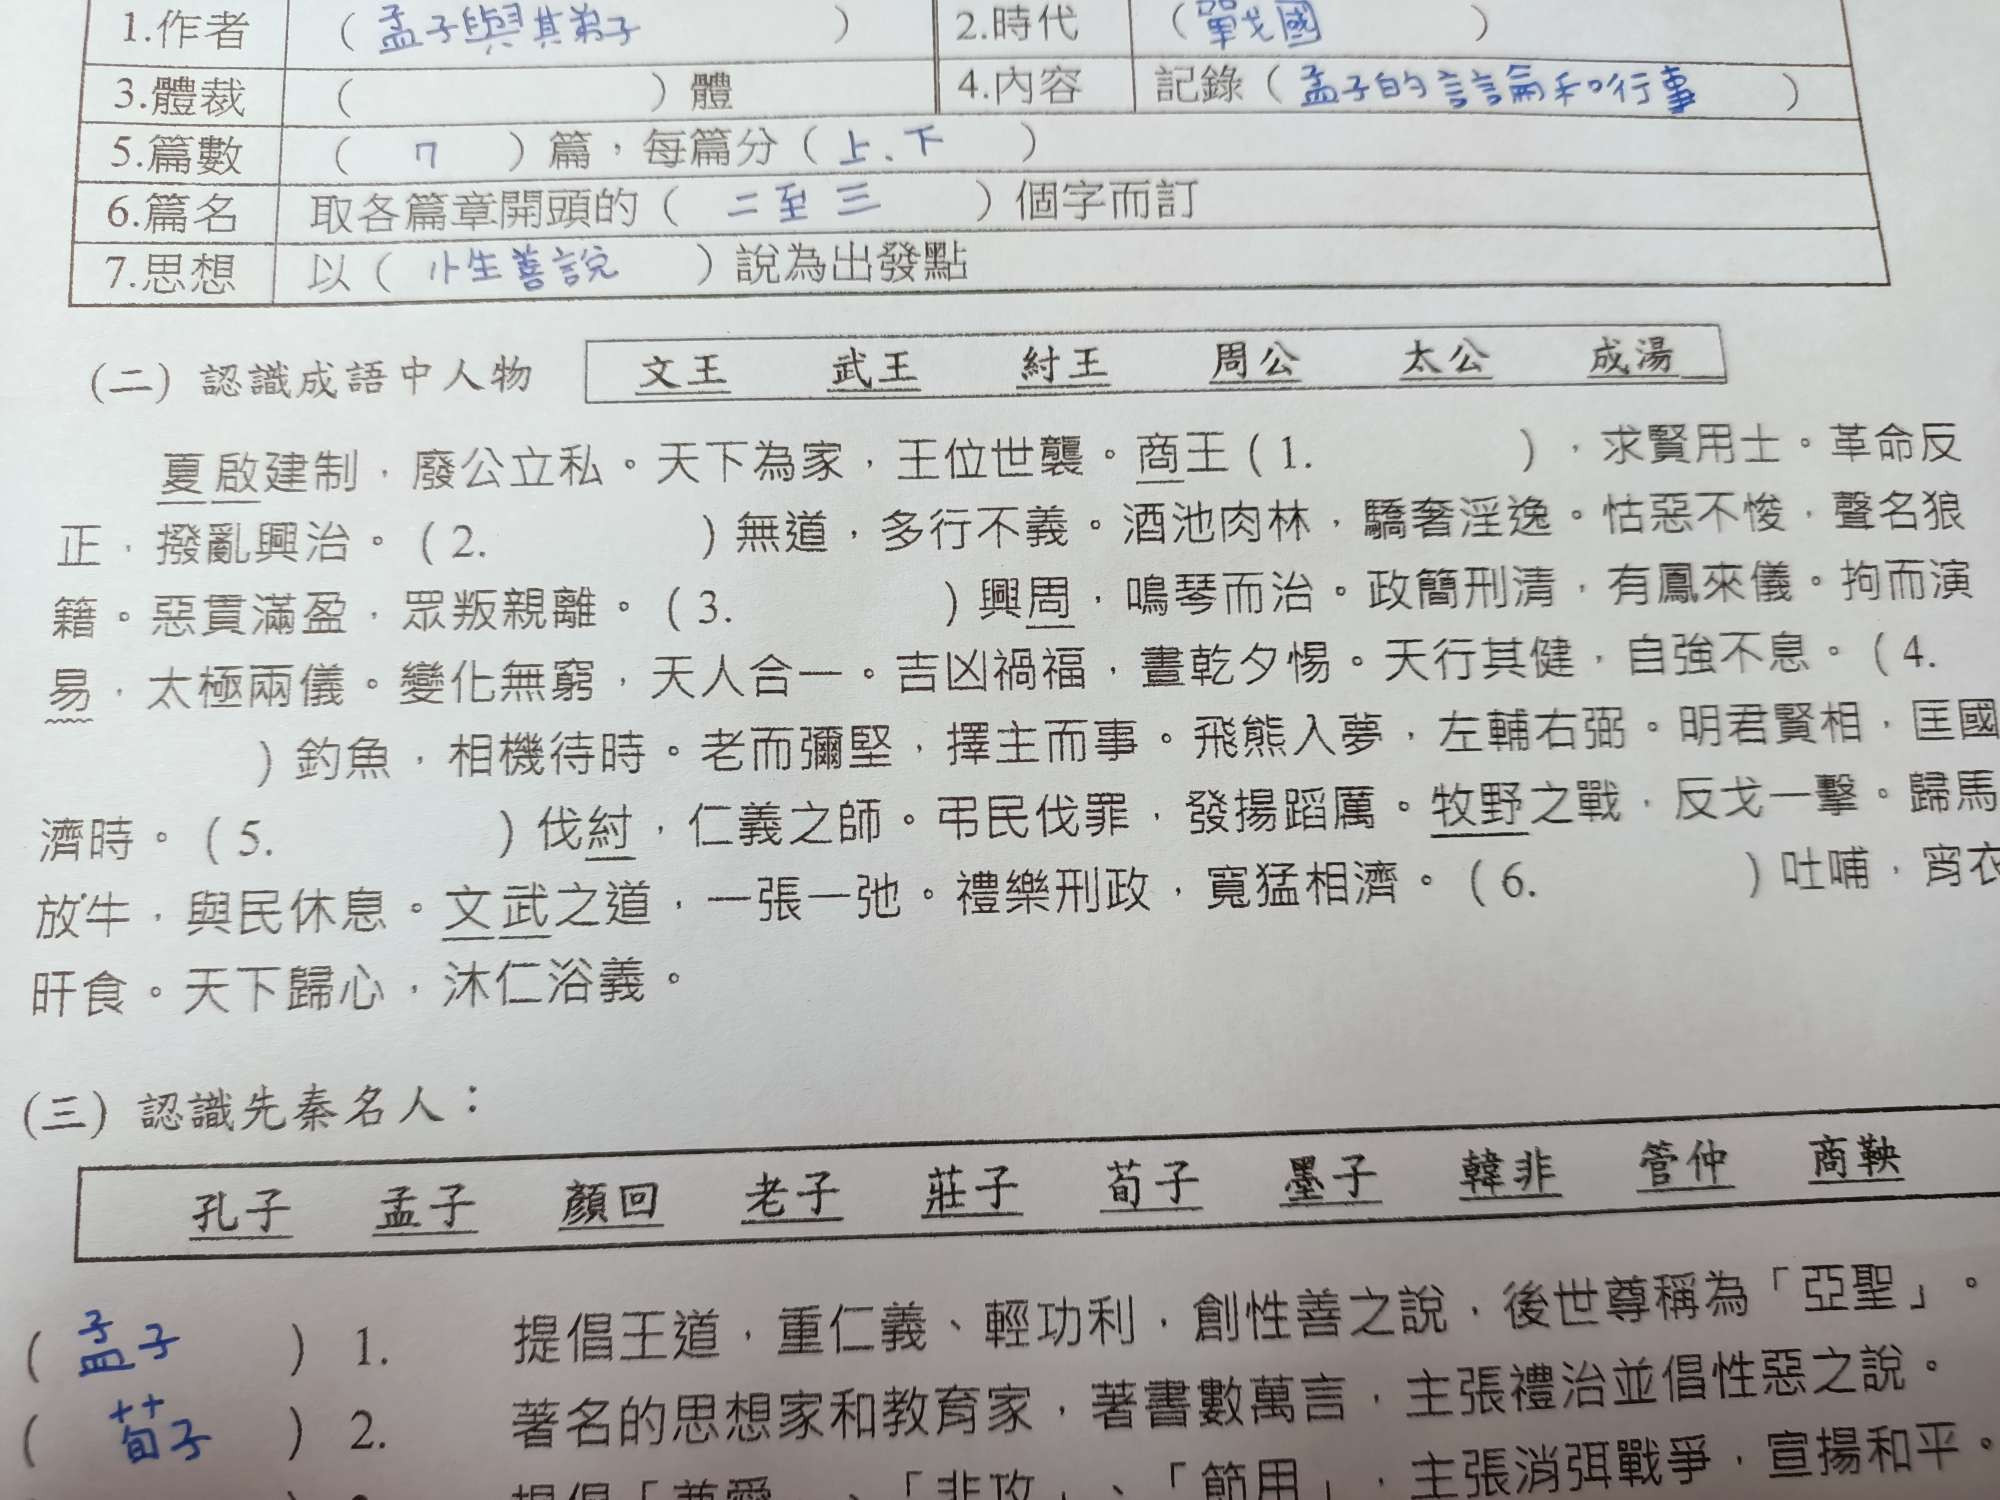 1.作者 （孟子與其弟子 ） 2.時代 （戰國 ）
3.體裁 （ ）體 4.內容 記錄（孟子的言論和行事 ）
5.篇數 （ 7 ）篇，每篇分（上、下 ）
6.篇名 取各篇章開頭的（ 二至三 ）個字而訂
7.思想 以（ 性善說 ）說為出發點
(二) 認識成語中人物 文王 武王 紂王 周公 太公 成湯
夏啟建制，廢公立私。天下為家，王位世襲。商王（1. ），求賢用士。革命反
正，撥亂興治。（2. ）無道，多行不義。酒池肉林，驕奢淫逸。怙惡不悛，聲名狼
籍。惡貫滿盈，眾叛親離。（3. ）興周，鳴琴而治。政簡刑清，有鳳來儀。拘而演
易，太極兩儀。變化無窮，天人合一。吉凶禍福，晝乾夕惕。天行其健，自強不息。（4.
）釣魚，相機待時。老而彌堅，擇主而事。飛熊入夢，左輔右弼。明君賢相，匡國
濟時。（5. ）伐紂，仁義之師。弔民伐罪，發揚蹈厲。牧野之戰，反戈一擊。歸馬
放牛，與民休息。文武之道，一張一弛。禮樂刑政，寬猛相濟。（6. ）吐哺，宵衣
旰食。天下歸心，沐仁浴義。
(三) 認識先秦名人：
孔子 孟子 顏回 老子 莊子 荀子 墨子 韓非 管仲 商鞅
（ 孟子 ） 1. 提倡王道，重仁義、輕功利，創性善之說，後世尊稱為「亞聖」。
（ 荀子 ） 2. 著名的思想家和教育家，著書數萬言，主張禮治並倡性惡之說。
提倡「兼愛」、「非攻」、「節用」，主張消弭戰爭，宣揚和平。